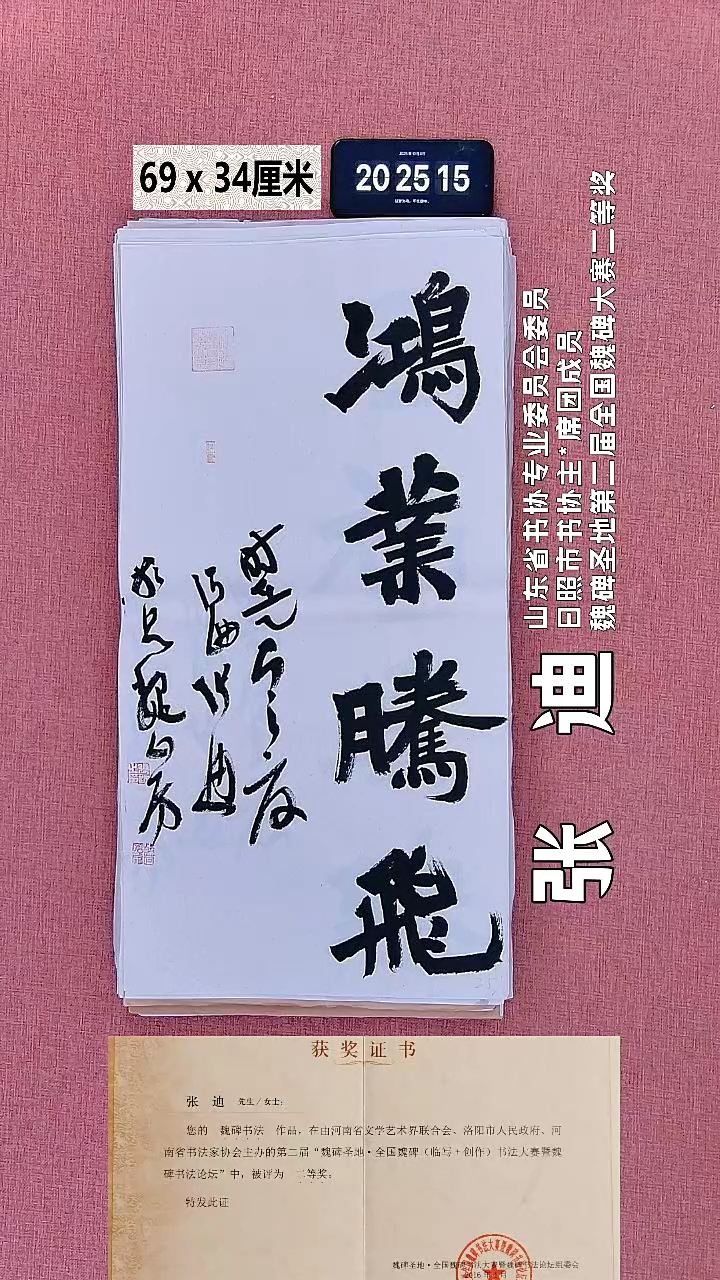 69 x 34厘米
20 25 15
鴻業騰飛
山东省书协专业委员会委员
日照市书协主*席团成员
魏碑圣地第二届全国魏碑大赛二等奖
张 迪
获奖证书
张 迪 先生/女士：
您的 魏碑书法 作品，在由河南省文学艺术界联合会、洛阳市人民政府、河
南省书法家协会主办的第二届“魏碑圣地·全国魏碑（临写+创作）书法大赛暨魏
碑书法论坛”中，被评为 二等奖：
特发此证
魏碑圣地·全国魏碑书法大赛暨魏碑书法论坛组委会